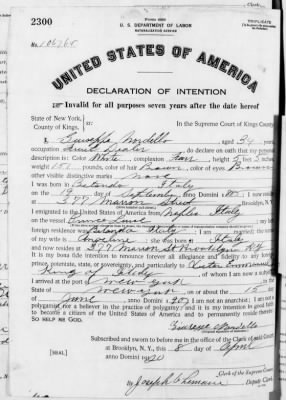 Form 2203
U. S. DEPARTMENT OF LABOR
NATURALIZATION SERVICE
TRIPLICATE
2300
No. 106765
UNITED STATES OF AMERICA
DECLARATION OF INTENTION
Invalid for all purposes seven years after the date hereof
State of New York,
County of Kings,
ss:
In the Supreme Court of Kings County
I, Giuseppe Nordello aged 34 years
occupation do declare on oath that my personal
description is: Color White, complexion Fair, height 5 feet 5 inches
weight 151 color of hair Brown color of eyes Brown
other visible distinctive marks
I was born in Italy
on the day of September anno Domini 1
at 377 Marion Street Brooklyn, N.Y.
I emigrated to the United States of America from Naples Italy
on the vessel
foreign residence was Italy I am married; the name
of my wife is Angeline she was born at Italy
and now resides at 377 Marion St Brooklyn NY
It is my bona fide intention to renounce forever all allegiance and fidelity to any foreign
prince, potentate, state, or sovereignty, and particularly to Victor Emmanuel
King of Italy, of whom I am now a subject
I arrived at the port of New York in the
State of New York on or about the 15 day
of June anno Domini 190 I am not an anarchist; I am not a
polygamist nor a believer in the practice of polygamy; and it is my intention in good faith
to become a citizen of the United States of America and to permanently reside therein:
SO HELP ME GOD.
Giuseppe Nordello
Subscribed and sworn to before me in the office of the Clerk of said Court
at Brooklyn, N. Y., this 8 day of April
anno Domini 1920
[SEAL]
Clerk of the Supreme Court
By Joseph Deputy Clerk